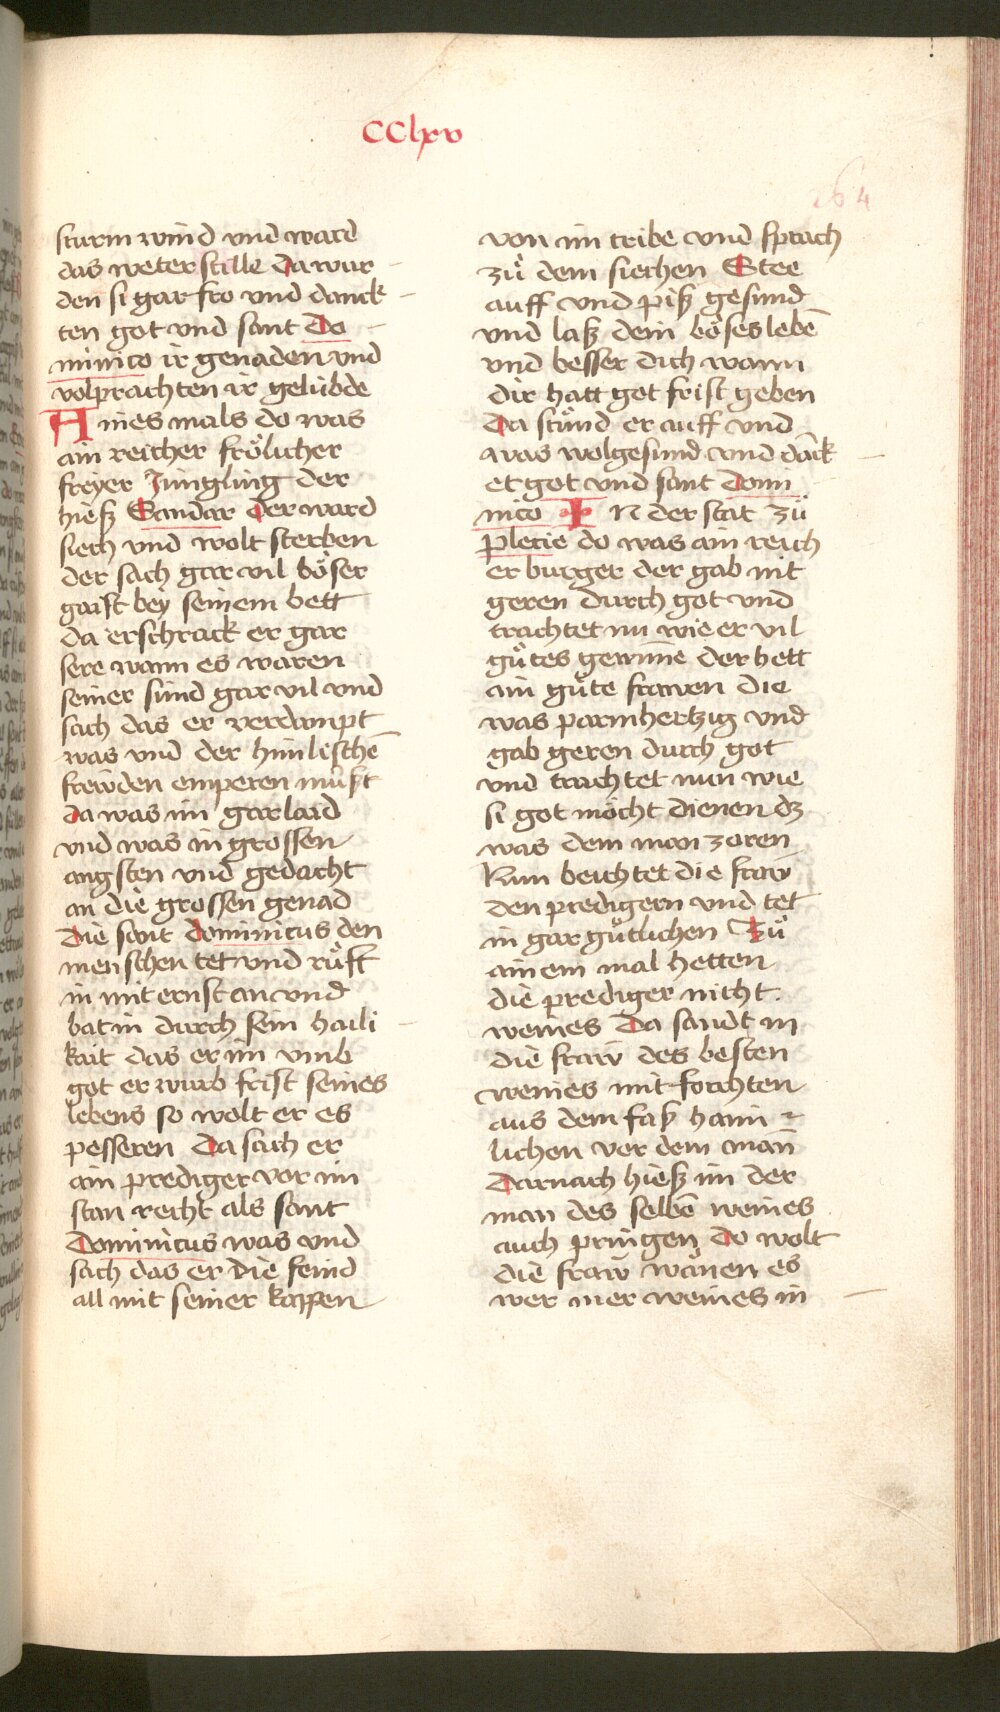 CClxv
264
sturm wind vnd ward
das weter stille Da wur
den si gar fro vnd danck
ten got vnd sant Do
minico ir genaden vnd
volprachten ir gelübde
Aines mals do was
ain reicher frölicher
freyer Jüngling der
hieß Sandar Der ward
siech vnd wolt sterben
der sach gar vil böser
gaist bey seinem bett
da erschrack er gar
sere wann es waren
seiner sünd gar vil vnd
sach das er verdampt
was vnd der himlischē
frewden emperen müst
da was im gar laid
vnd was in grossen
angsten vnd gedacht
an die grossen genad
Die sant Dominicus den
menschen tet vnd rüft
in mit ernst an vnd
bat in durch sein haili
kait das er im vmb
got er wurb frist seines
lebens so wolt er es
pesseren Da sach er
ain prediger vor im
stan recht als sant
Dominicus was vnd
sach das er die feind
all mit seiner kappen
von im tribe vnd sprach
zů dem siechen Stee
auff vnd piß gesund
vnd laß dein böses lebē
vnd besser dich wann
dir hatt got frist geben
Da stůnd er auff vnd
was wolgesund vnd dāck
et got vnd sant Domi
nico In der stat zů
Plecie do was ain reich
er burger der gab nit
geren durch got vnd
trachtet nu wie er vil
gůtes gewinne der hett
ain gůte frawen die
was parmhertzig vnd
gab geren durch got
vnd trachtet nun wie
si got möcht dienen dz
was dem man zoren
Nun beichtet die fraw
den predigern vnd tet
in gar gůtlichen Zů
ainem mal hetten
die prediger nicht
weines Da sandt in
die fraw des besten
weines mit forchten
aus dem faß haim
lichen vor dem man
Darnach hieß im der
man des selbē weines
auch pringen Do wolt
die fraw wänen es
wer mer weines in